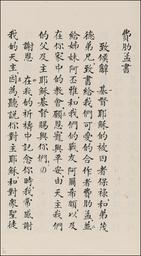 費肋孟書
致候辭 基督耶穌的被囚者保祿和弟茂
德弟兄致書給我們可愛的合作者費肋孟並
給姊妹阿丕雅和我們的戰友阿爾希頗以及
在你家中的教會願恩寵與平安由天主我們
的父及主耶穌基督賜與你們
謝恩 在我的祈禱中記念你時我常感謝
我的天主因為聽說你對主耶穌和對眾聖徒